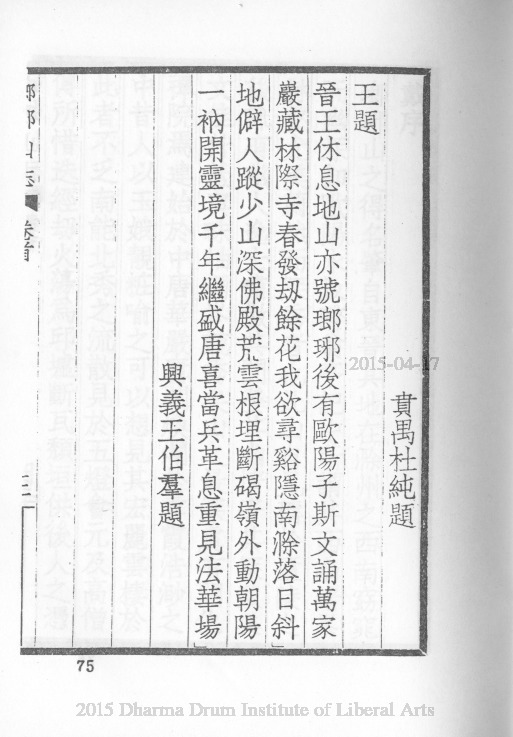 賁禺杜純題
王題
晉王休息地山亦號瑯琊後有歐陽子斯文誦萬家
巖藏林際寺春發刼餘花我欲尋谿隱南滁落日斜
地僻人蹤少山深佛殿荒雲根埋斷碣嶺外動朝陽
一衲開靈境千年繼盛唐喜當兵革息重見法華場
興義王伯羣題
山志 卷首
75
2015-04-17
2015 Dharma Drum Institute of Liberal Arts